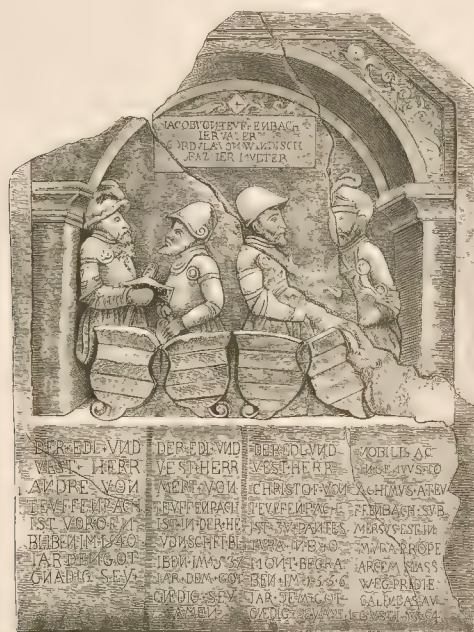 IACOB VON TEVFFENBACH
IER VATER
CORDVLA VON WINDISCH
IER MVETER
DER EDL VND
VEST HERR
ANDRE VON
TEVFFENPACH
IST VOR OFEN
BLIBEN IM 1540
IAR DEN GOT
GNADIG SEY
DER EDL VND
VEST HERR
MERT VON
TEVFFENPACH
IST IN DER
IBEN IM
IAR DEM GOT
GNEDIG SEY
AMEN
DER EDL VND
VEST HERR
CHRISTOF VON
TEVFFENPACH
IST ZV
MONT BEGRA
BEN IM 1556
IAR DEM GOT
GNEDIG
NOBILIS AC
ACHIMVS A TEV
FFENBACH SVB
MERSVS EST IN
MVRA PROPE
ARCEM MASS
WEG PRIDIE
CALENDAS AV
GVSTI